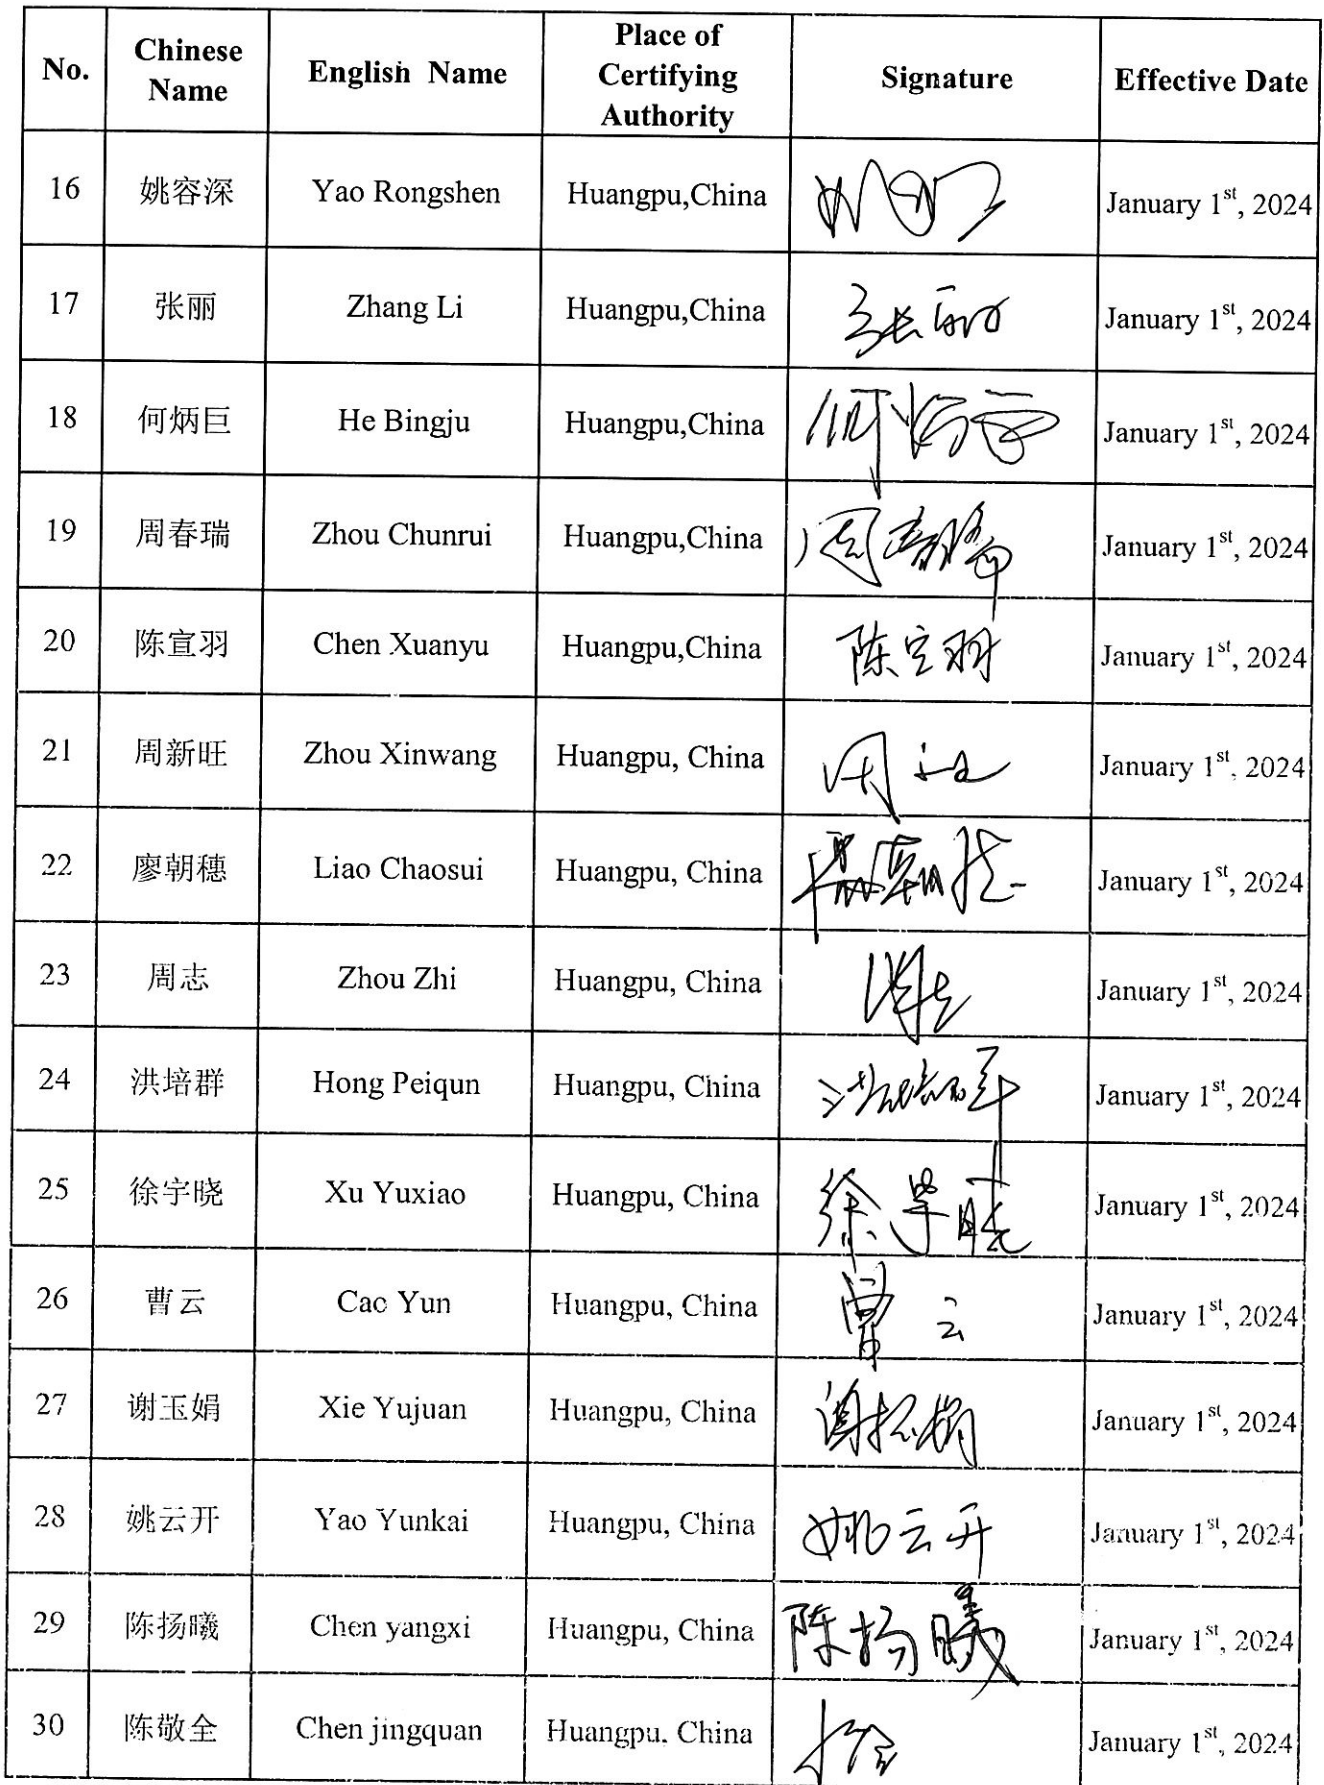 No.
Chinese
Name
English Name
Place of
Certifying
Authority
Signature
Effective Date
16 姚容深 Yao Rongshen Huangpu,China January 1st, 2024
17 张丽 Zhang Li Huangpu,China 张丽 January 1st, 2024
18 何炳巨 He Bingju Huangpu,China January 1st, 2024
19 周春瑞 Zhou Chunrui Huangpu,China 周春瑞 January 1st, 2024
20 陈宣羽 Chen Xuanyu Huangpu,China 陈宣羽 January 1st, 2024
21 周新旺 Zhou Xinwang Huangpu, China January 1st, 2024
22 廖朝穗 Liao Chaosui Huangpu, China January 1st, 2024
23 周志 Zhou Zhi Huangpu, China January 1st, 2024
24 洪培群 Hong Peiqun Huangpu, China 洪培群 January 1st, 2024
25 徐宇晓 Xu Yuxiao Huangpu, China January 1st, 2024
26 曹云 Cao Yun Huangpu, China 曹云 January 1st, 2024
27 谢玉娟 Xie Yujuan Huangpu, China January 1st, 2024
28 姚云开 Yao Yunkai Huangpu, China 姚云开 January 1st, 2024
29 陈扬曦 Chen yangxi Huangpu, China 陈扬曦 January 1st, 2024
30 陈敬全 Chen jingquan Huangpu, China January 1st, 2024